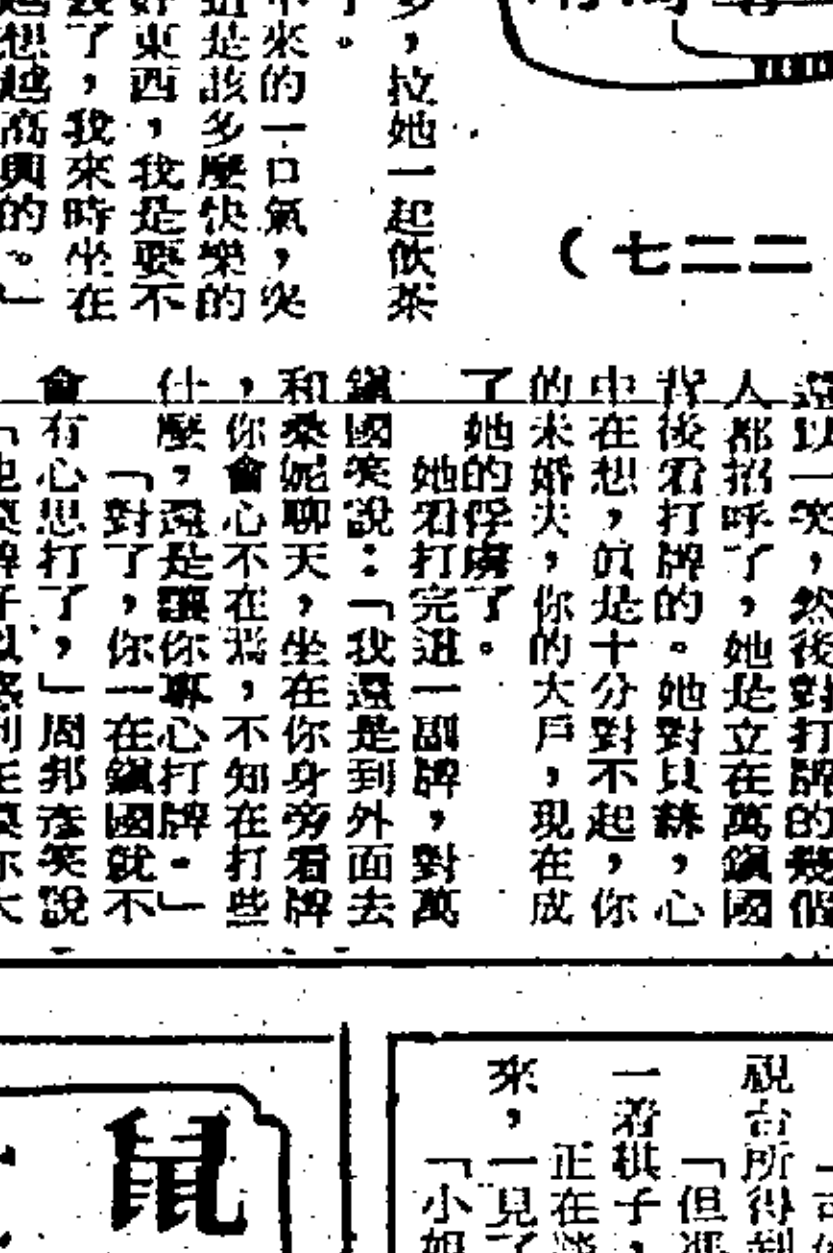 （七二二
多，拉她一起飲茶
了。
來的一口氣，突
這是該多麼快樂的
好東西，我是要不
了，我來時坐在
想越高興的。」
還以一笑，然後對打牌的幾個
人都招呼了，她是立在萬鎭國
背後看打牌的。她對貝絲，心
中在想，眞是十分對不起，你
的未婚夫，你的大戶，現在成
了她的俘虜了。
她看打完這一副牌，對萬
鎭國笑說：「我還是到外面去
和桑妮聊天，坐在你身旁看牌
，你會心不在焉，不知在打些
什麼，還是讓你專心打牌。」
「對了，你一在鎭國就不
會有心思打了，」周邦彥笑說
視台所得到
「但馮
一着棋子，
正在談
來，一見了
「小姐
鼠